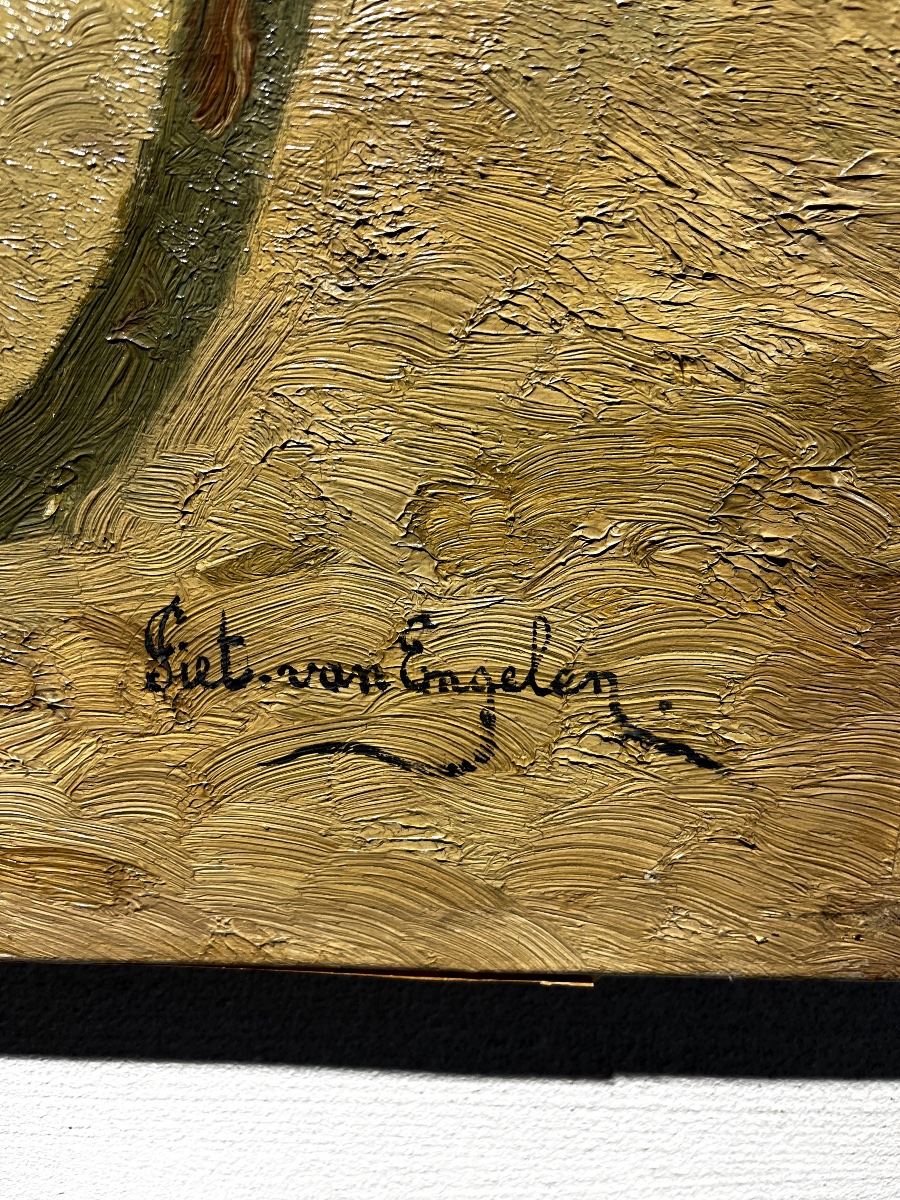 Piet. van Engelen.